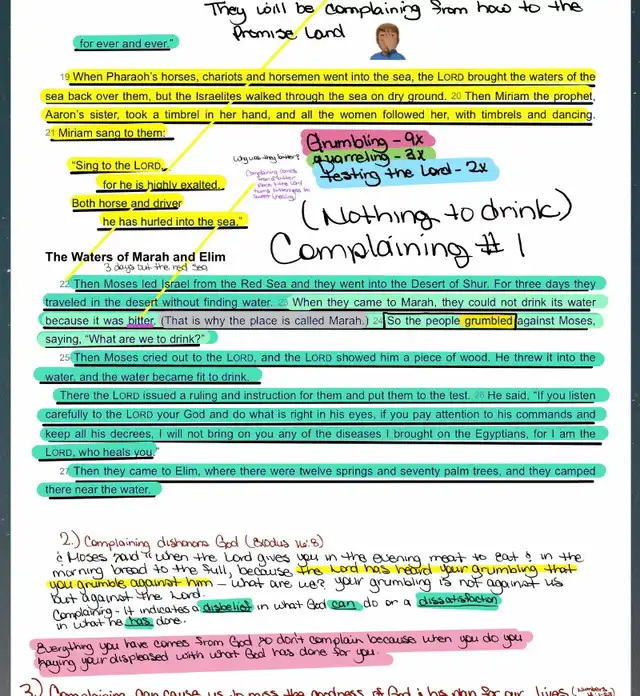 They will be complaining from how to the
Promise Land
for ever and ever."
19 When Pharaoh's horses, chariots and horsemen went into the sea, the LORD brought the waters of the
sea back over them, but the Israelites walked through the sea on dry ground. 20 Then Miriam the prophet,
Aaron's sister, took a timbrel in her hand, and all the women followed her, with timbrels and dancing.
21 Miriam sang to them:
Grumbling - 9x
quarreling - 3x
testing the Lord - 2x
why was they bitter?
Complaining comes
from a bitter
place & the Lord
turns bitterness to
sweet
"Sing to the LORD,
for he is highly exalted.
Both horse and driver
he has hurled into the sea."
(Nothing to drink)
Complaining #1
The Waters of Marah and Elim
3 days out the red sea
22 Then Moses led Israel from the Red Sea and they went into the Desert of Shur. For three days they
traveled in the desert without finding water. 23 When they came to Marah, they could not drink its water
because it was bitter. (That is why the place is called Marah.) 24 So the people grumbled against Moses,
saying, "What are we to drink?"
25 Then Moses cried out to the LORD, and the LORD showed him a piece of wood. He threw it into the
water, and the water became fit to drink.
There the LORD issued a ruling and instruction for them and put them to the test. 26 He said, "If you listen
carefully to the LORD your God and do what is right in his eyes, if you pay attention to his commands and
keep all his decrees, I will not bring on you any of the diseases I brought on the Egyptians, for I am the
LORD, who heals you."
27 Then they came to Elim, where there were twelve springs and seventy palm trees, and they camped
there near the water.
2.) Complaining dishonors God (Exodus 16:8)
& Moses said "when the Lord gives you in the evening meat to eat & in the
morning bread to the full, because the Lord has heard your grumbling that
you grumble against him - what are we? your grumbling is not against us
but against the Lord.
Complaining - It indicates a disbelief in what God can do or a dissatisfaction
in what he has done.
Everything you have comes from God so don't complain because when you do you
saying your displeased with what God has done for you.
3.) Complaining can cause us to miss the goodness of God & his plan for our lives (Numbers